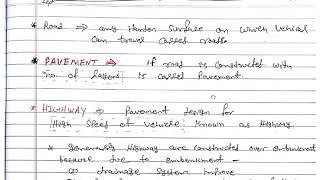 * Road ⇒ any Harden Surface on which Vehical
can travel called roads
* PAVEMENT ⇒ If road is constructed with
no. of layers is called Pavement
* HIGHWAY → Pavement design for
High Speed of vehicle known as Highway
* Generously Highway are constructed over embankment
because due to embankment -
(i) drainage System improve